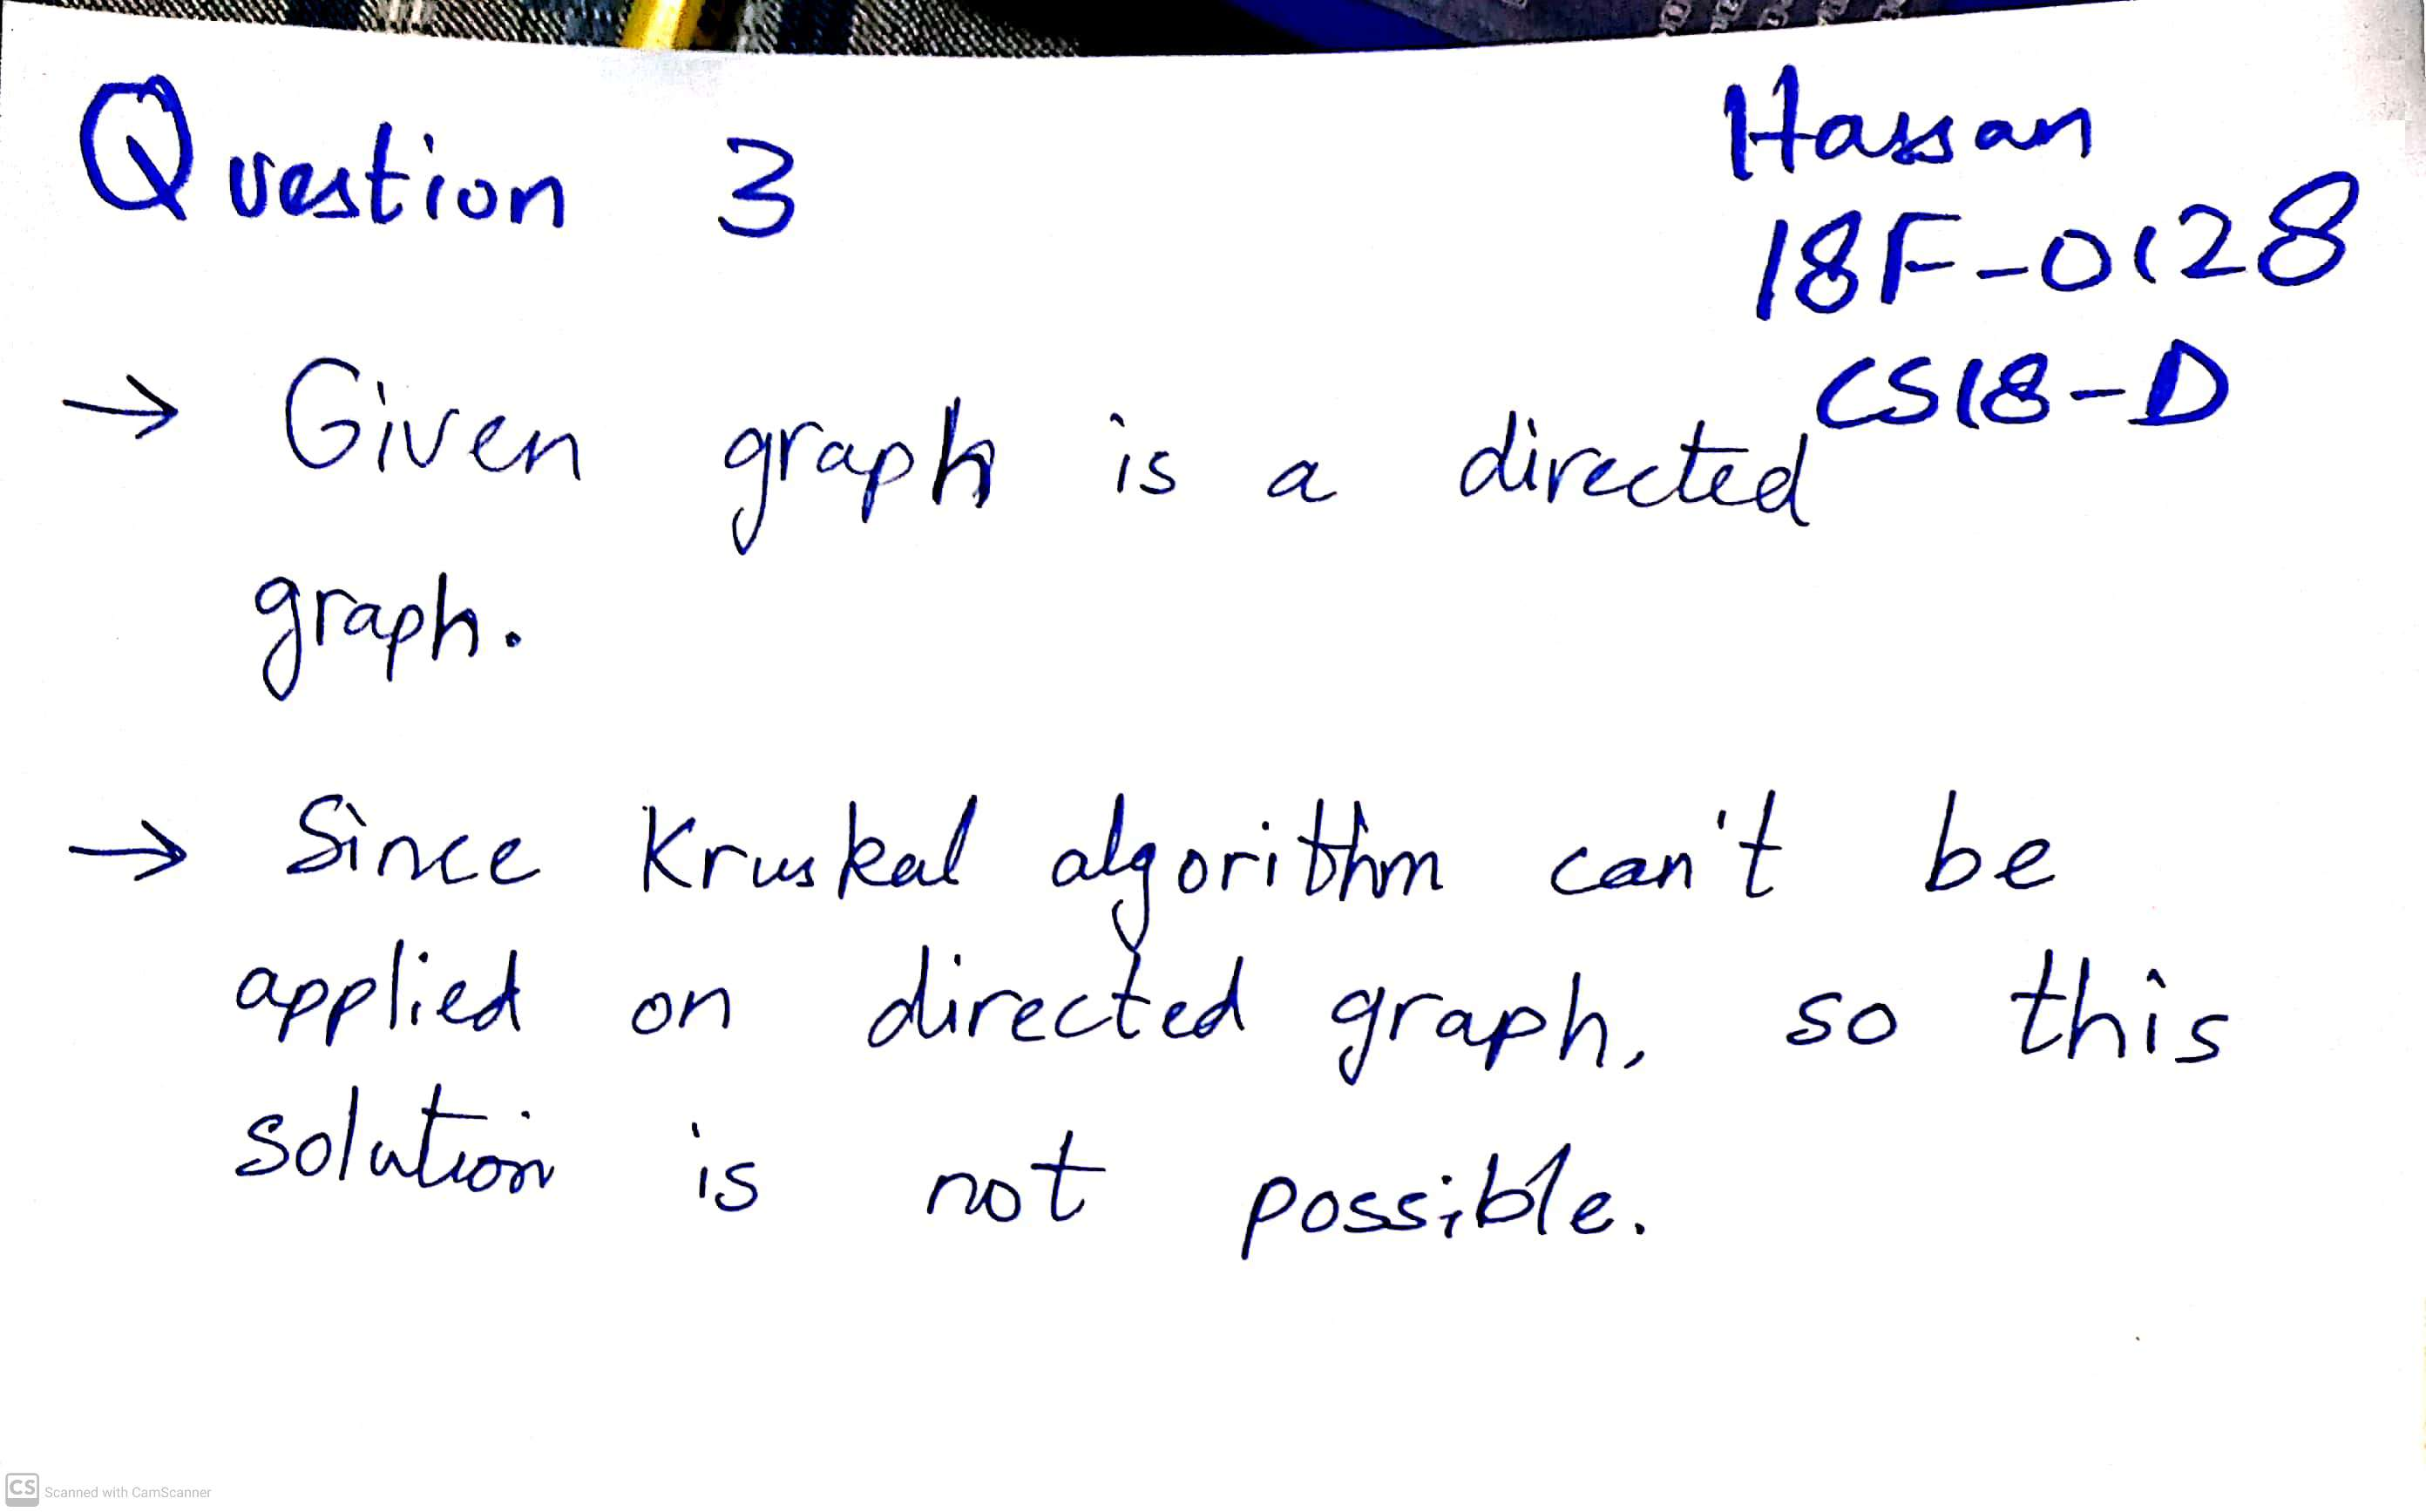 Question 3
Hassan
18F-0128
CS18-D
→ Given graph is a directed
graph.
→ Since Kruskal algorithm can't be
applied on directed graph, so this
solution is not possible.
CS Scanned with CamScanner